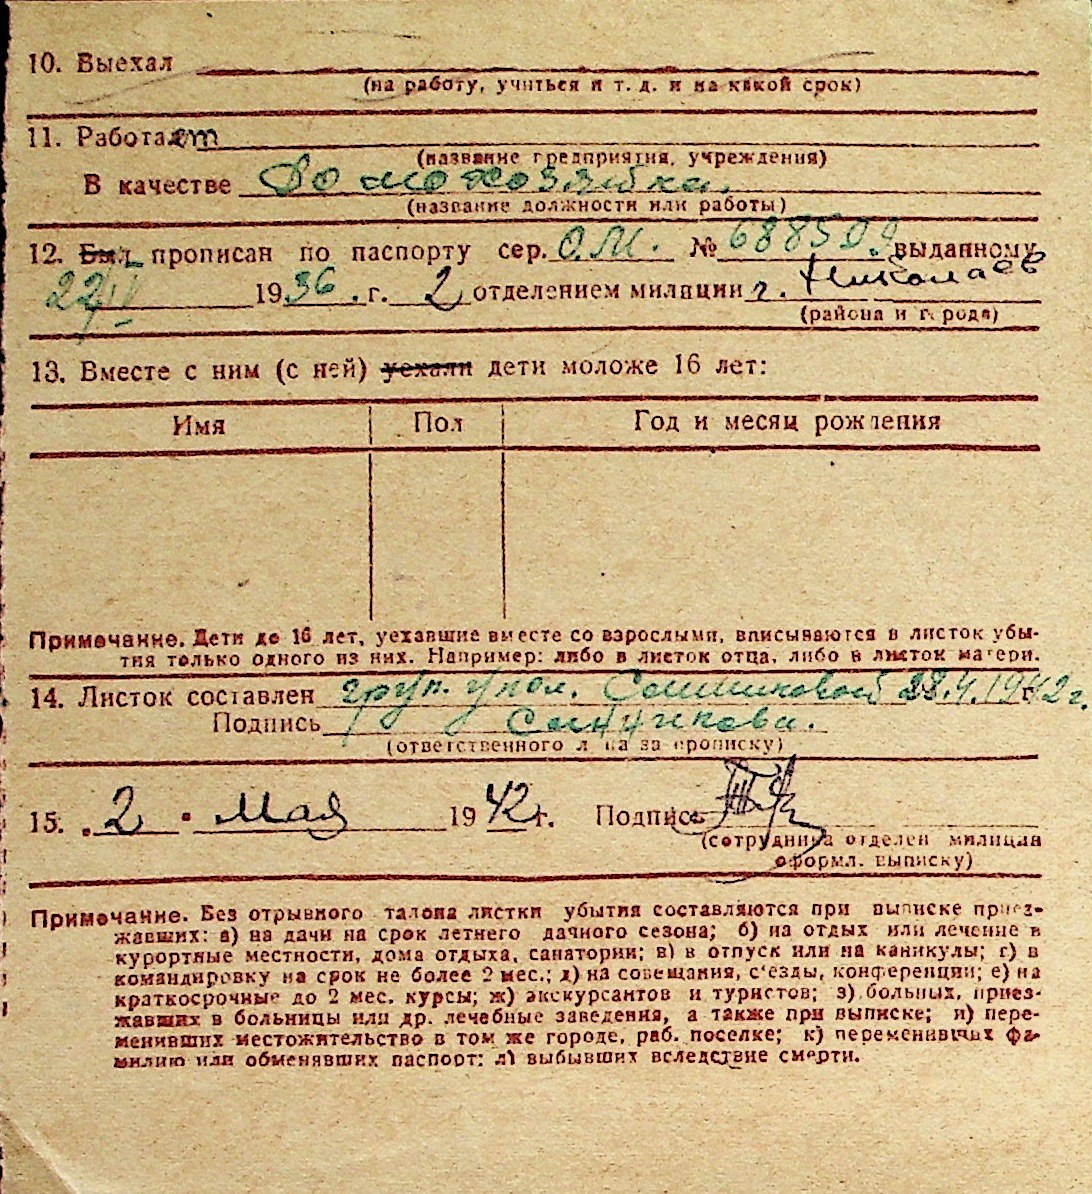 10. Выехал
(на работу, учиться и т. д. и на какой срок)
11. Работает
(название предприятия, учреждения)
В качестве Домохозяйка.
(название должности или работы)
12. Был прописан по паспорту сер. О.М. № 688509 выданному
22/V 1936 г. 2 отделением милиции г. Николаев
(района и города)
13. Вместе с ним (с ней) уехали дети моложе 16 лет:
Имя Пол Год и месяц рождения
Примечание. Дети до 16 лет, уехавшие вместе со взрослыми, вписываются в листок убы-
тия только одного из них. Например: либо в листок отца, либо в листок матери.
14. Листок составлен груп. упол. 28.4.1942 г.
Подпись
(ответственного лица за прописку)
15. „2" Мая 1942 г. Подпись
(сотрудника отделен милиции
оформл. выписку)
Примечание. Без отрывного талона листки убытия составляются при выписке приез-
жавших: а) на дачи на срок летнего дачного сезона; б) на отдых или лечение в
курортные местности, дома отдыха, санатории; в) в отпуск или на каникулы; г) в
командировку на срок не более 2 мес.; д) на совещания, с'езды, конференции; е) на
краткосрочные до 2 мес. курсы; ж) экскурсантов и туристов; з) больных, приез-
жавших в больницы или др. лечебные заведения, а также при выписке; и) пере-
менивших местожительство в том же городе, раб. поселке; к) переменивших фа-
милию или обменявших паспорт; л) выбывших вследствие смерти.